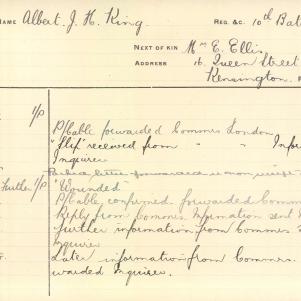 NAME Albert J. H. King. REG. &C. 10th Bat
NEXT OF KIN Mrs E. Ellis
ADDRESS 16 Queen Street
Kensington.
1/P P/Cable forwarded Commrs London
"Slip" received from " " Infor
Inquirer
Further 1/P "Wounded"
P/Cable, confirmed, forwarded Comm
Reply from Commrs. Information sent
further information from Commrs
Inquirer
Later information from Commrs.
warded Inquirer.